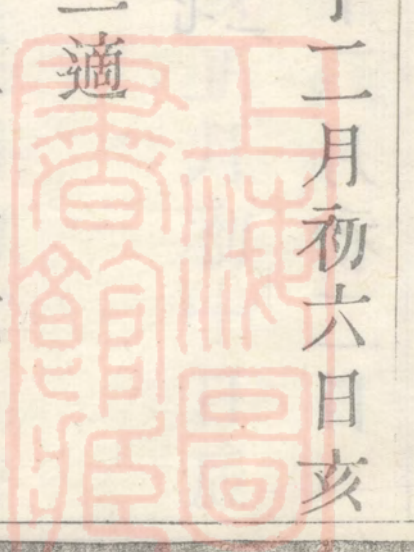 十二月初六日亥
二適
上海圖
書館藏